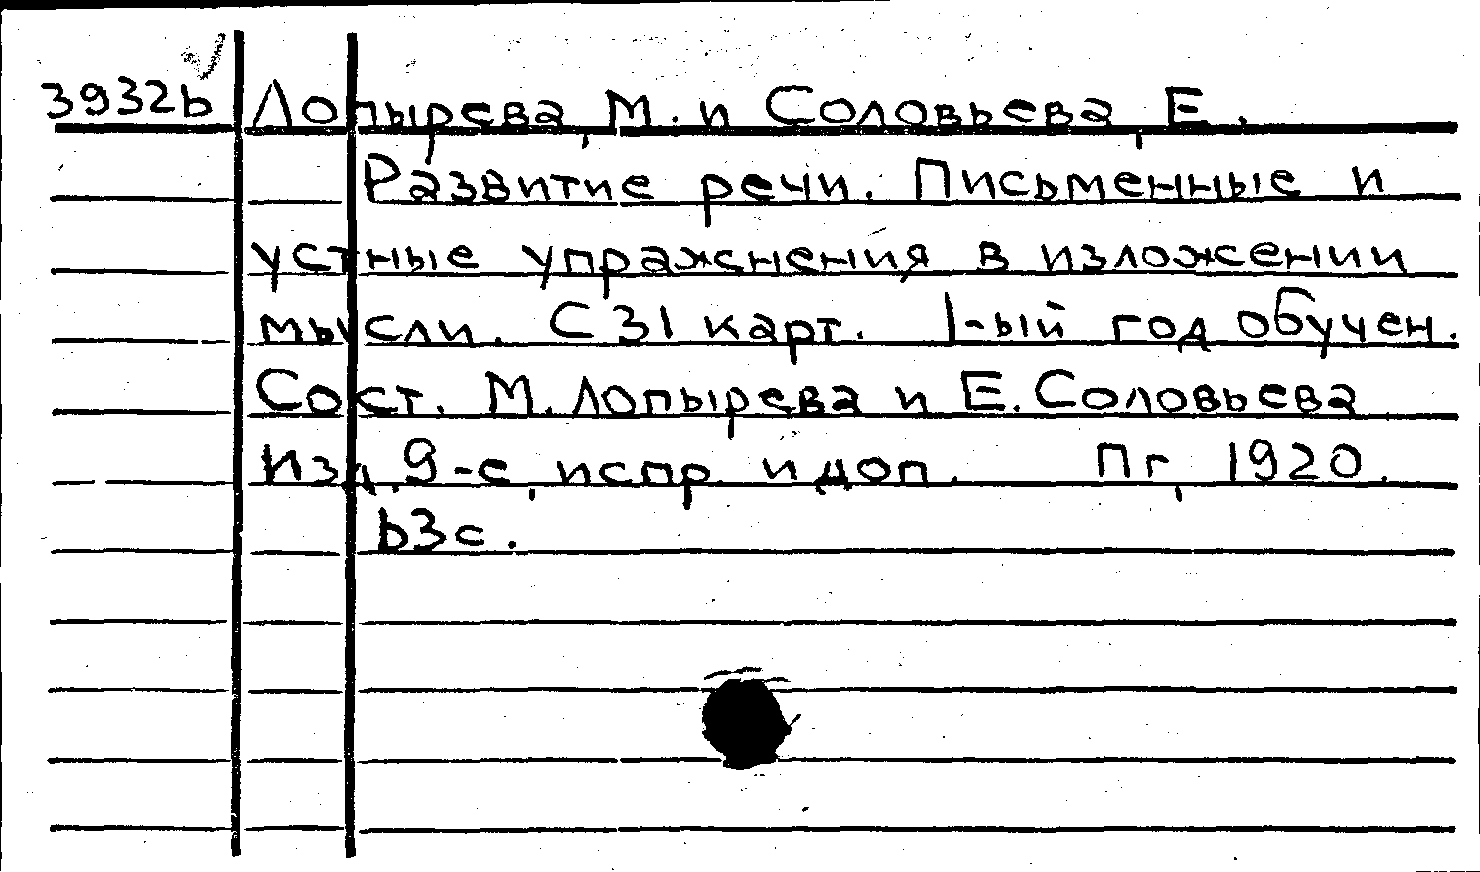 39326 Лопырева, М. и Соловьева, Е.
Развитие речи. Письменные и
устные упражнения в изложении
мысли. С 31 карт. 1-ый год обучен.
Сост. М. Лопырева и Е. Соловьева
Изд. 9-е, испр. и доп. Пг, 1920.
63с.